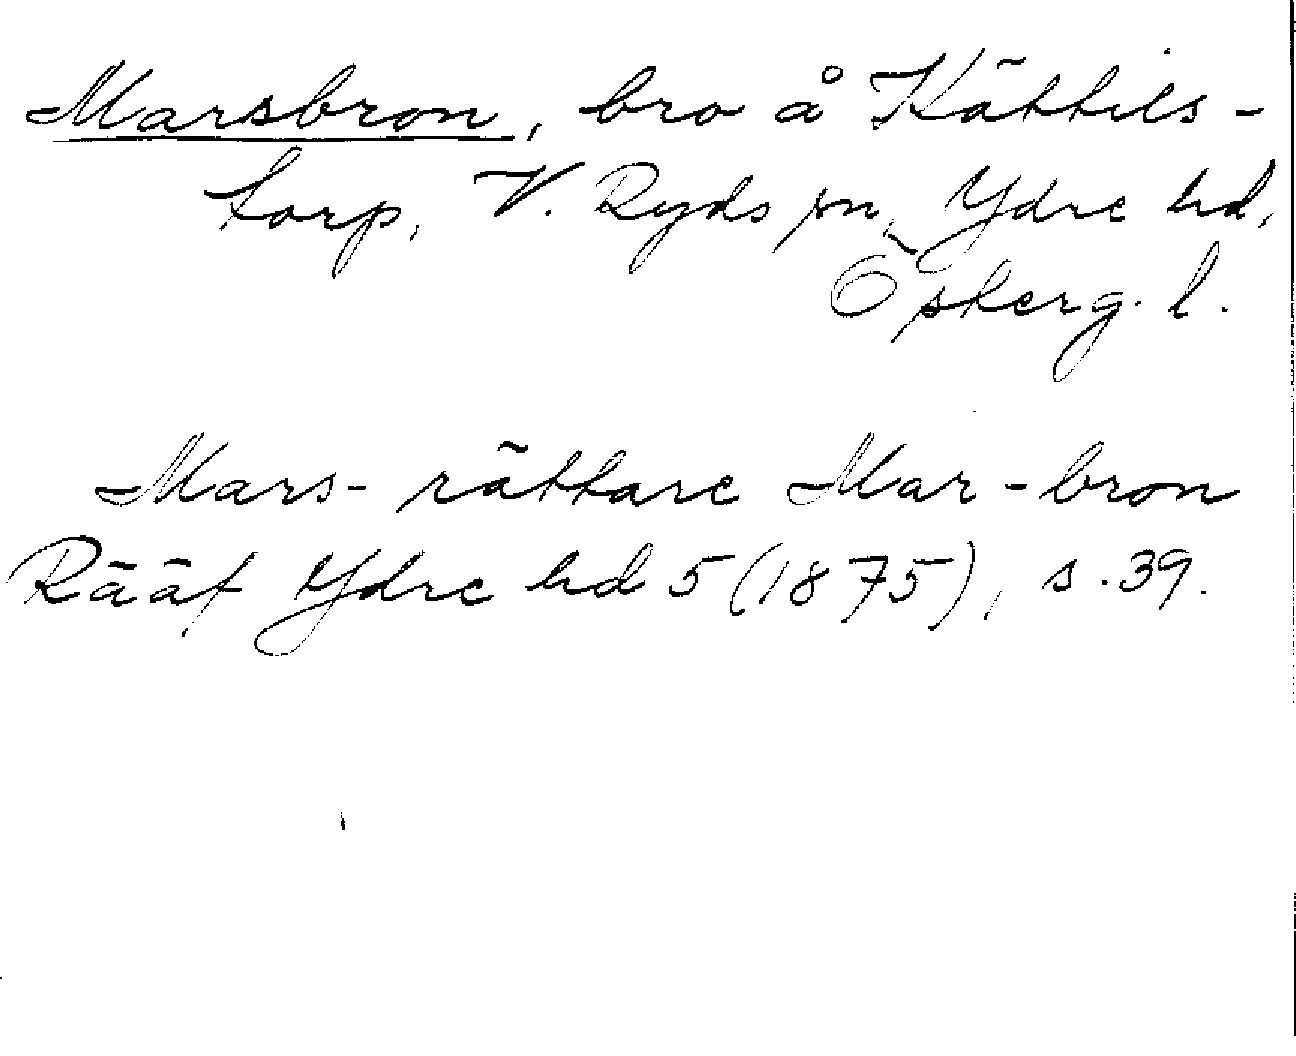 Marsbron, bro å Kättils-
torp, V. Ryds sn, Ydre hd,
Östergl.
Mars- rättare Mar-bron
Rääf Ydre hd 5 (1875), s. 39.